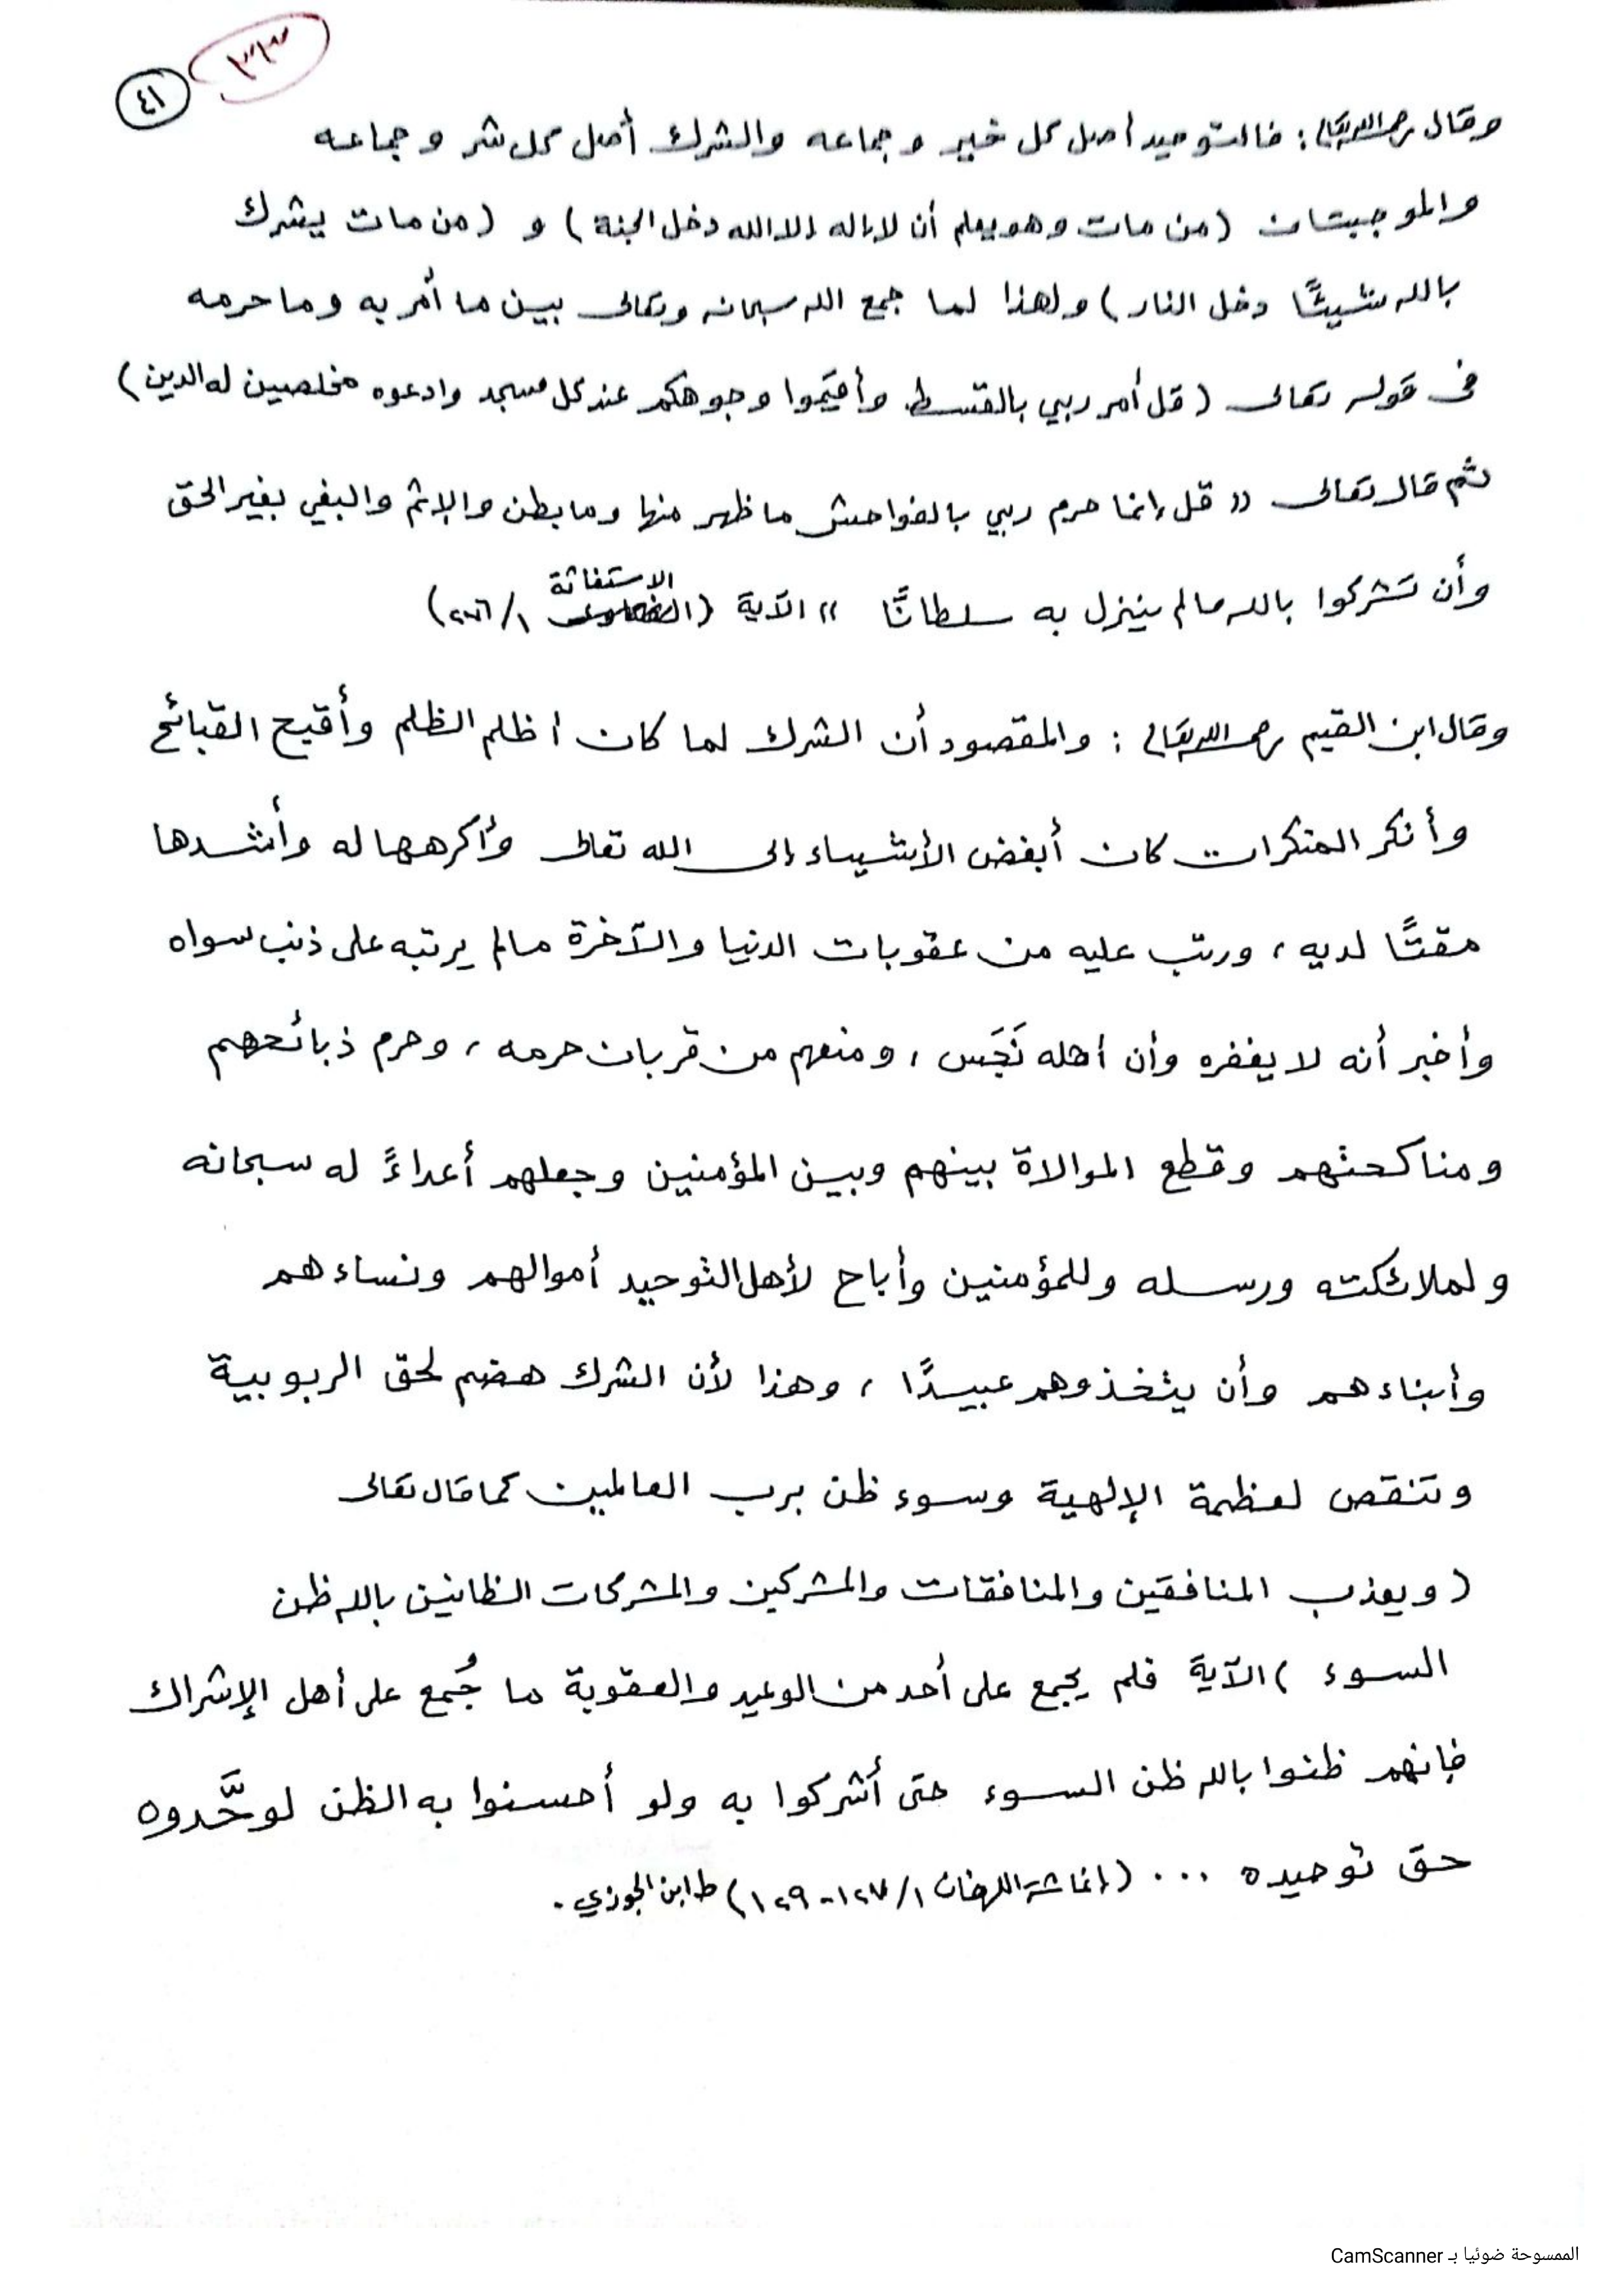 ٣٣
٤١
وقال رحمه الله تعالى : فالتوحيد أصل كل خير وجماعه والشرك أصل كل شر وجماعه
والموجبتان (من مات وهو يعلم أن لا إله إلا الله دخل الجنة) و (من مات يشرك
بالله شيئًا دخل النار) ولهذا لما جمع الله سبحانه وتعالى بين ما أمر به وما حرمه
في قوله تعالى (قل أمر ربي بالقسط وأقيموا وجوهكم عند كل مسجد وادعوه مخلصين له الدين)
ثم قال تعالى «قل إنما حرم ربي بالفواحش ما ظهر منها وما بطن والإثم والبغي بغير الحق
وأن تشركوا بالله ما لم ينزل به سلطانًا» الآية (الاستغاثة ١/ ٢٧٦)
وقال ابن القيم رحمه الله تعالى : والمقصود أن الشرك لما كان أظلم الظلم وأقبح القبائح
وأنكر المنكرات كان أبغض الأشياء إلى الله تعالى وأكرهها له وأشدها
مقتًا لديه ، ورتب عليه من عقوبات الدنيا والآخرة مالم يرتبه على ذنب سواه
وأخبر أنه لا يغفره وأن أهله نَجَس ، ومنعهم من قربان حرمه ، وحرم ذبائحهم
ومناكحتهم وقطع الموالاة بينهم وبين المؤمنين وجعلهم أعداءً له سبحانه
ولملائكته ورسله وللمؤمنين وأباح لأهل التوحيد أموالهم ونساءهم
وأبناءهم وأن يتخذوهم عبيدًا ، وهذا لأن الشرك هضم لحق الربوبية
وتنقص لعظمة الإلهية وسوء ظن برب العالمين كما قال تعالى
(ويعذب المنافقين والمنافقات والمشركين والمشركات الظانين بالله ظن
السوء) الآية فلم يجمع على أحد من الوعيد والعقوبة ما جُمع على أهل الإشراك
فإنهم ظنوا بالله ظن السوء حتى أشركوا به ولو أحسنوا به الظن لوحَّدوه
حق توحيده ... (إغاثة اللهفان ١/ ١٢٧-١٢٩) ط ابن الجوزي .
الممسوحة ضوئيا بـ CamScanner